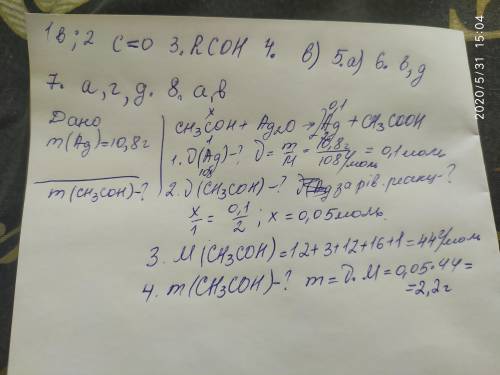 1в; 2 C=O 3. RCOH 4. в) 5.а) 6. в,д
7. а, г, д. 8. а,в
Дано
m(Ag)=10,8г
m(CH₃COH)-?
x 0,1
CH₃COH + Ag₂O → 2Ag + CH₃COOH
1 108
1. ν(Ag)-? ν = m/M = 10,8г/108г/моль = 0,1 моль
2. ν(CH₃COH)-? за рів. реакц-?
x/1 = 0,1/2; x = 0,05 моль.
3. M(CH₃COH)=12+3+12+16+1=44г/моль
4. m(CH₃COH)-? m=ν·M=0,05·44=
=2,2г
2020/5/31 15:04